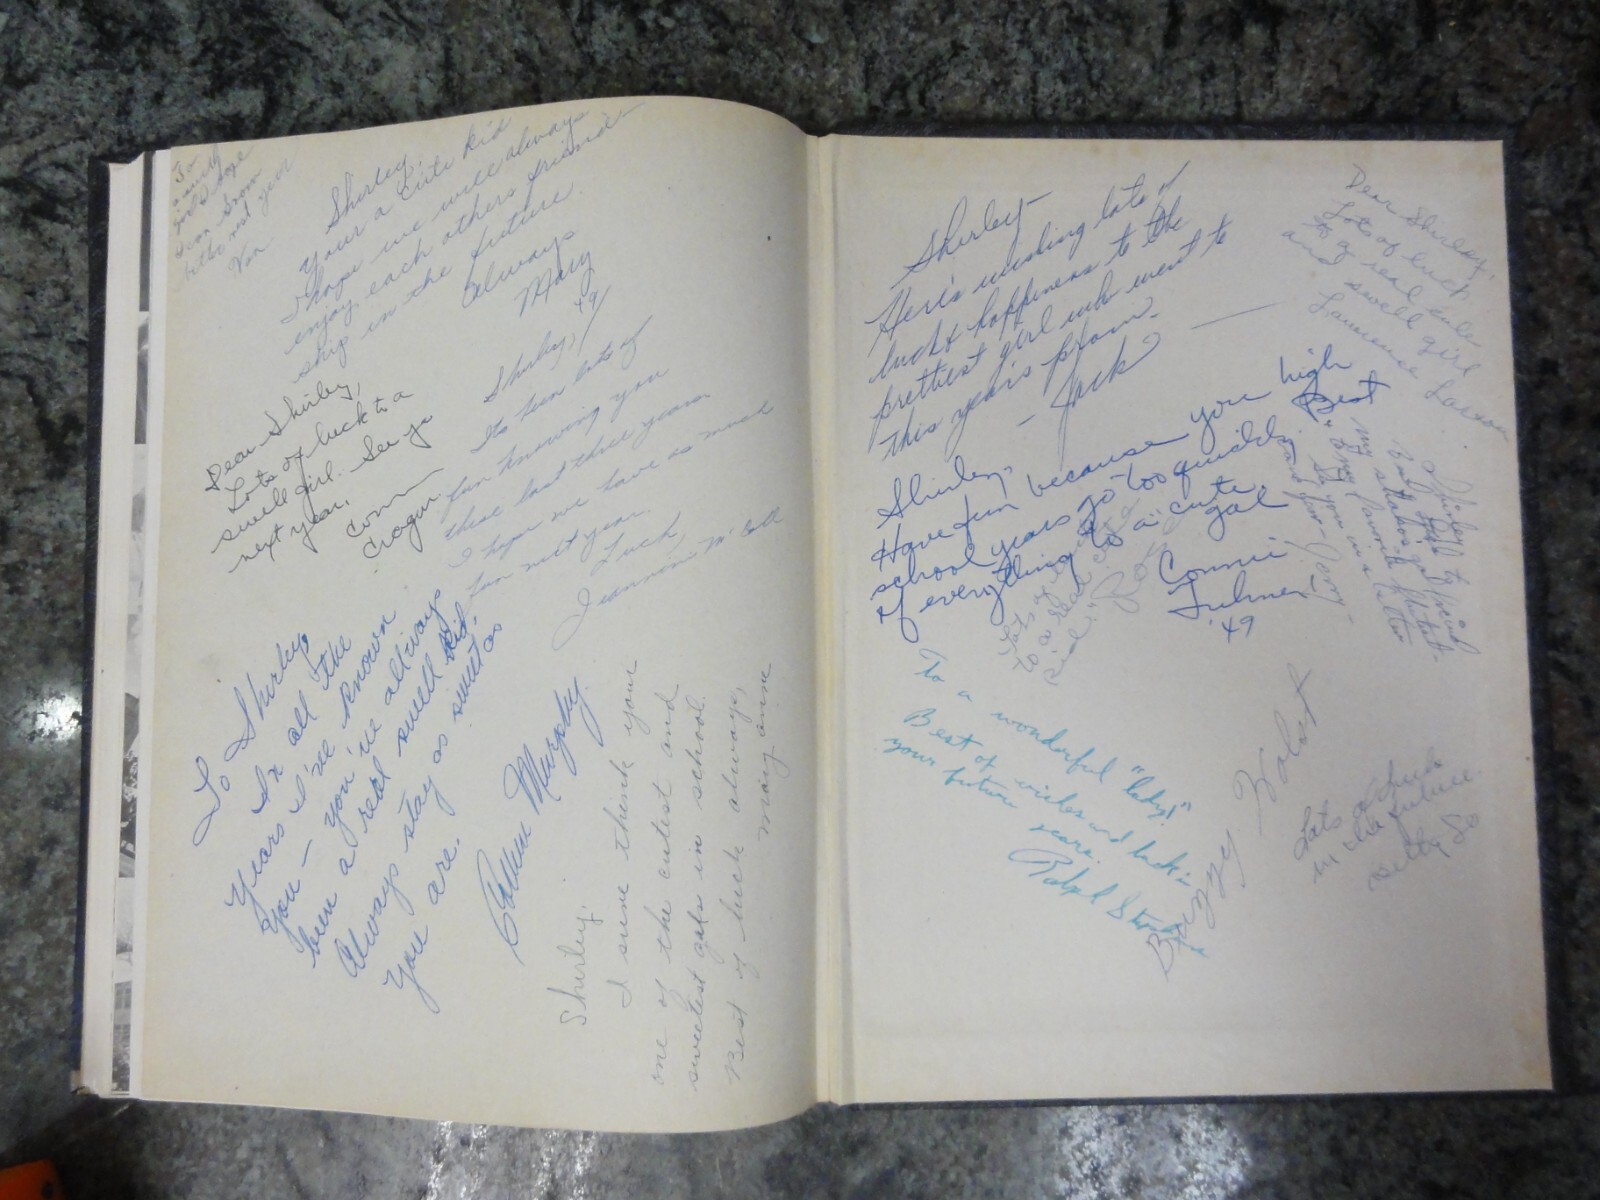 To
swell
girl I hope
I can
better next year
Van
Shirley,
Your a cute kid
I hope we will always
enjoy each others friend-
ship in the future.
Always
Mary
49
Dear Shirley,
Lots of luck to a
swell girl. See ya
next year.
Connie
Shirley,
Its been lots of
fun knowing you
these last three years
I hope we have as much
fun next year.
Luck,
Jeannine McCall
To Shirley
In all the
years I've known
you — you've always
been a real swell kid.
Always stay as sweet as
you are.
Colleen Murphy
Shirley,
I sure think your
one of the cutest and
sweetest gals in school.
Best of luck always,
Mary Anne
Shirley-
Here's wishing lots of
luck & happiness to the
prettiest girl who went to
this year's prom.
- Jack
Dear Shirley,
Lots of luck
to a real cute
and swell girl
Laurence Larson
Shirley,
Have fun because your high
school years go too quickly. Best
of everything to a "cute"
gal
Connie
Fulmer
'49
Lots of luck
to a real cute
kid.
Ros
Shirley
to
my
& my favorite
See you in
- Jerry -
To a wonderful "lady!"
Best of wishes and luck in
your future years.
Ralph
Buzzy Holst
Lots of luck
in the future
Betty Jo